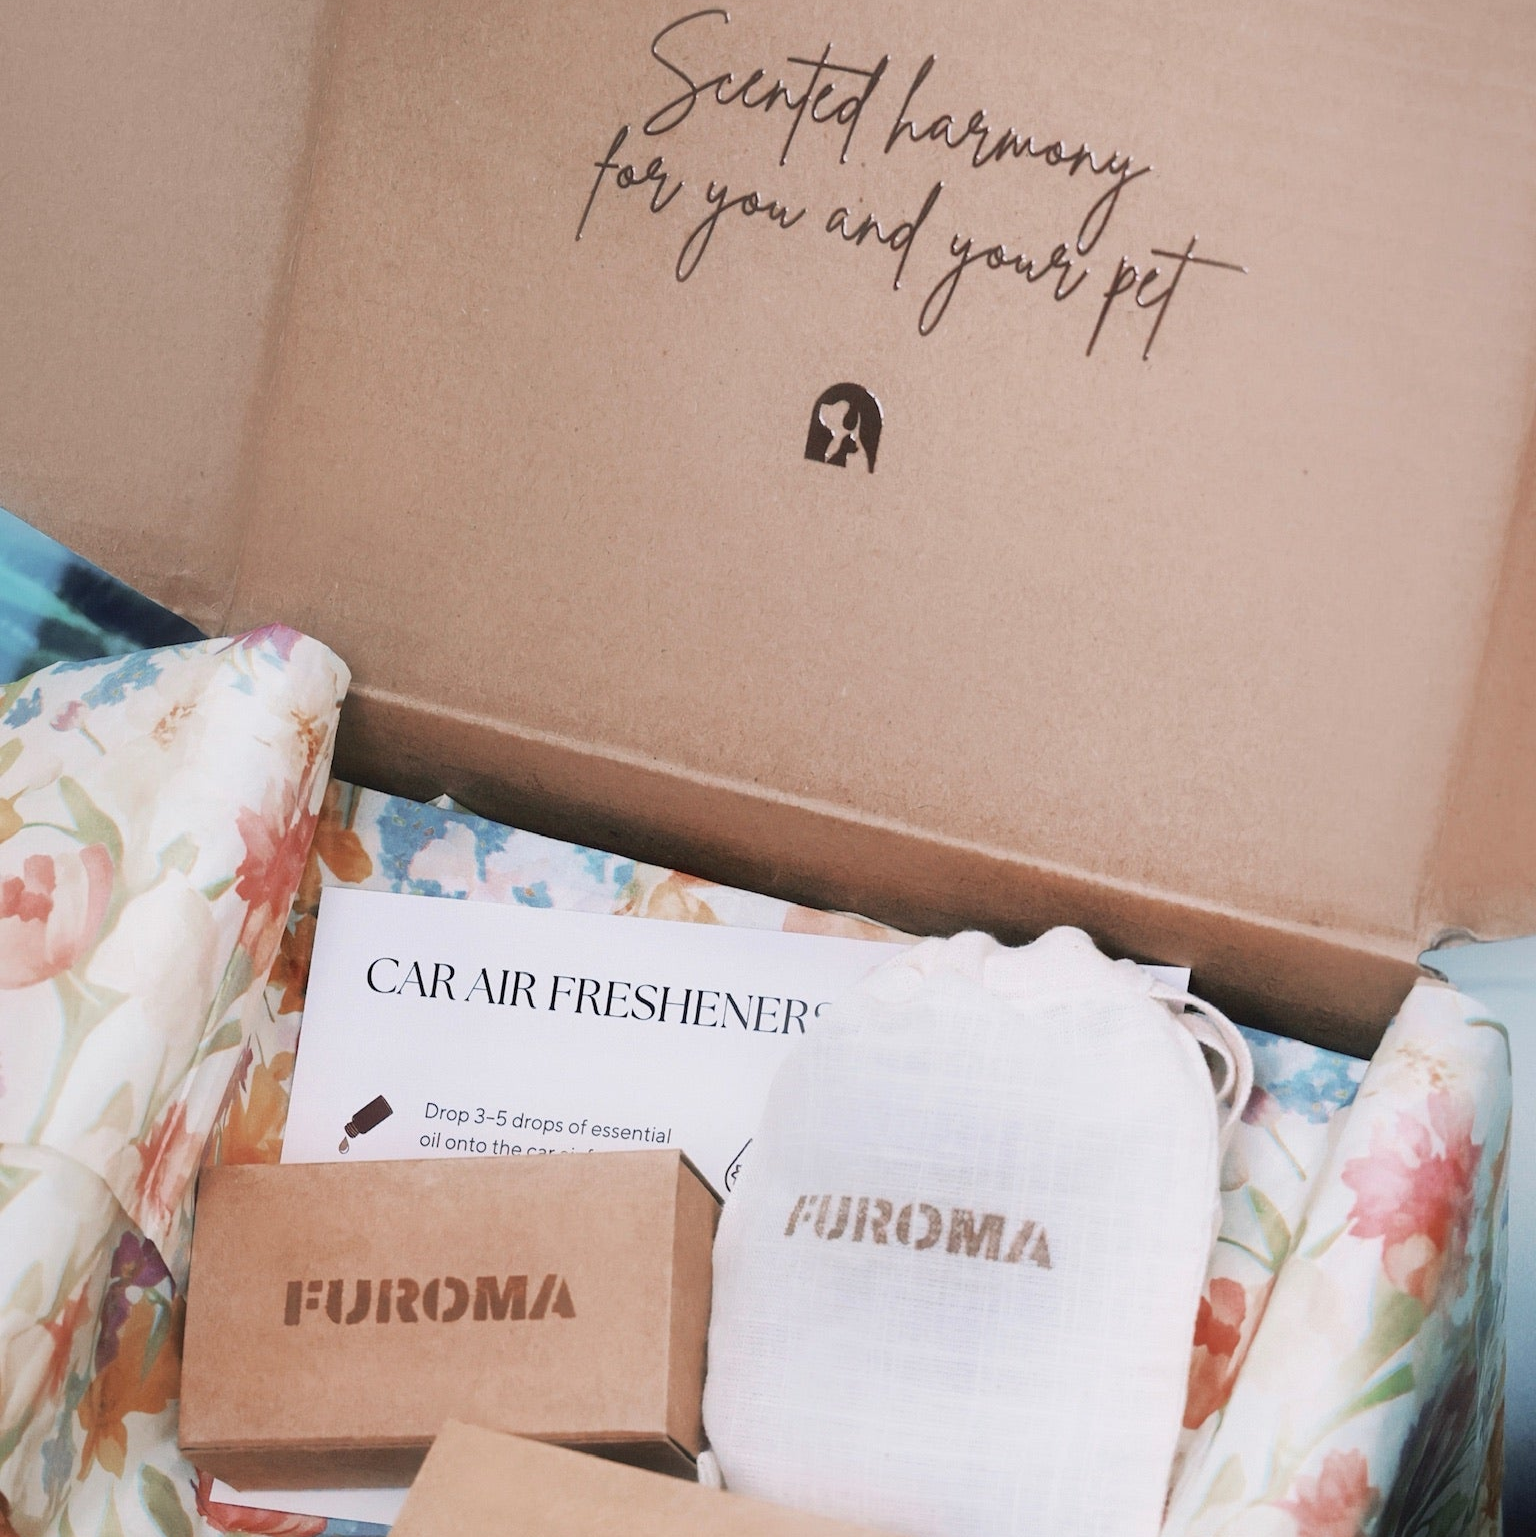 Scented harmony
for you and your pet
CAR AIR FRESHENERS
Drop 3–5 drops of essential
oil onto the car
FUROMA
FUROMA